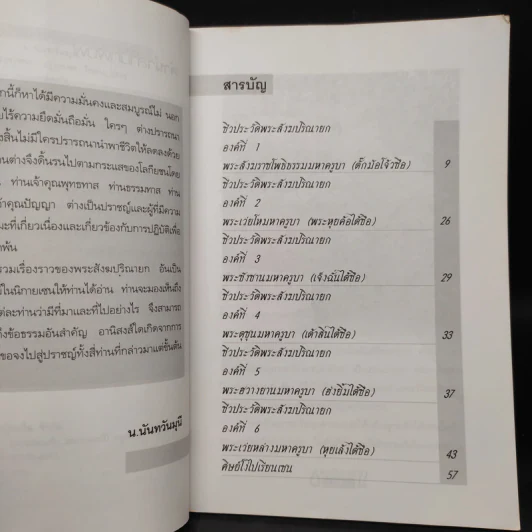 กนี้ก็หาได้มีความมั่นคงและสมบูรณ์ไม่ นอก
ยไร้ความยึดมั่นถือมั่น ใครๆ ต่างปรารถนา
งสิ้นไม่มีใครปรารถนานำพาชีวิตให้ลดลงด้วย
นต่างจึงดิ้นรนไปตามกระแสของโลกียชนโดย
ท่านเจ้าคุณพุทธทาส ท่านธรรมทาส ท่าน
จ้าคุณปัญญา ต่างเป็นปราชญ์และผู้ที่มีความ
มะที่เกี่ยวเนื่องและเกี่ยวข้องกับการปฏิบัติเพื่อ
พ้น
รวมเรื่องราวของพระสังฆปริณายก อันเป็น
ในนิกายเซนให้ท่านได้อ่าน ท่านจะมองเห็นถึง
ต่ละท่านว่ามีที่มาและที่ไปอย่างไร จึงสามารถ
ถึงข้อธรรมอันสำคัญ อานิสงส์ใดเกิดจากการ
ขอจงไปสู่ปราชญ์ทั้งสี่ท่านที่กล่าวมาแต่ชั้นต้น
น.นันทวันมุนี
สารบัญ
ชีวประวัติพระสังฆปริณายก
องค์ที่ 1
พระสังฆราชโพธิธรรมมหาครูบา (ตั๊กม้อโจ้วซือ) 9
ชีวประวัติพระสังฆปริณายก
องค์ที่ 2
พระเว่ยโหมหาครูบา (พระหุยค้อไต้ซือ) 26
ชีวประวัติพระสังฆปริณายก
องค์ที่ 3
พระซังซานมหาครูบา (เจ็งฉั่นไต้ซือ) 29
ชีวประวัติพระสังฆปริณายก
องค์ที่ 4
พระตุซุนมหาครูบา (เต้าสิ่นไต้ซือ) 33
ชีวประวัติพระสังฆปริณายก
องค์ที่ 5
พระฮวางยานมหาครูบา (ฮ่งยิ้มไต้ซือ) 37
ชีวประวัติพระสังฆปริณายก
องค์ที่ 6
พระเว่ยหล่างมหาครูบา (หุยเล้งไต้ซือ) 43
ศิษย์โง่ไปเรียนเซน 57